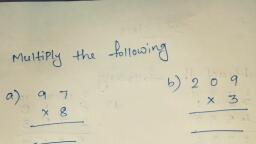 Multiply the following
a) 97 b) 209
x 8 x 3